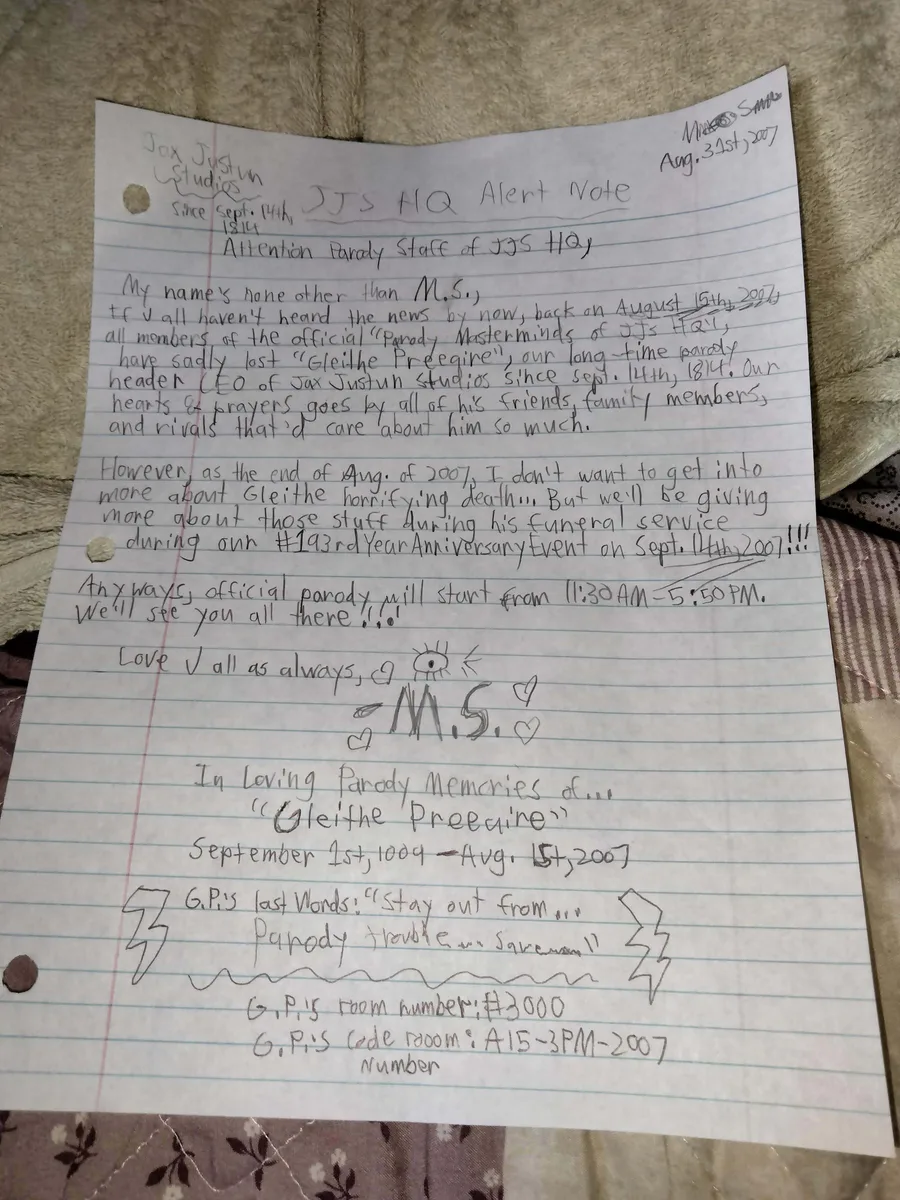 Jax Justun
Studios
Since Sept. 14th,
1814
Aug. 31st, 2007
JJS HQ Alert Note
Attention Parody Staff of JJS HQ,
My name's none other than M.S.,
If U all haven't heard the news by now, back on August 15th, 2007,
all members of the official "Parody Masterminds of JJS HQ",
have sadly lost "Gleithe Preegire", our long-time parody
header CEO of Jax Justun Studios since Sept. 14th, 1814. Our
hearts & prayers goes by all of his friends, family members,
and rivals that'd care about him so much.
However, as the end of Aug. of 2007, I don't want to get into
more about Gleithe horrifying death... But we'll be giving
more about those stuff during his funeral service
during our #193rd Year Anniversary Event on Sept. 14th, 2007!!!
Anyways, official parody will start from 11:30AM-5:50PM.
We'll see you all there!!!
Love U all as always,
-M.S.
In Loving Parody Memories of...
"Gleithe Preegire"
September 1st, 1009 - Aug. 15t, 2007
G.P.'s last Words: "Stay out from...
Parody trouble...
G.P.'s room number: #3000
G.P.'s Code room: A15-3PM-2007
Number